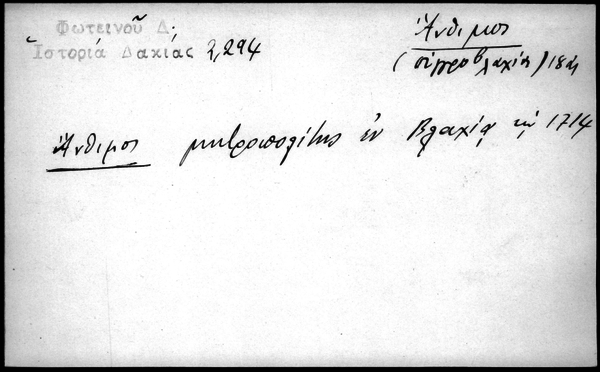 Φωτεινοῦ Δ.
Ἱστορία Δακίας 2,294
Ἄνθιμος
(Οὑγγροβλαχίας)
Ἄνθιμος μητροπολίτης ἐν Βλαχίᾳ τῷ 1714